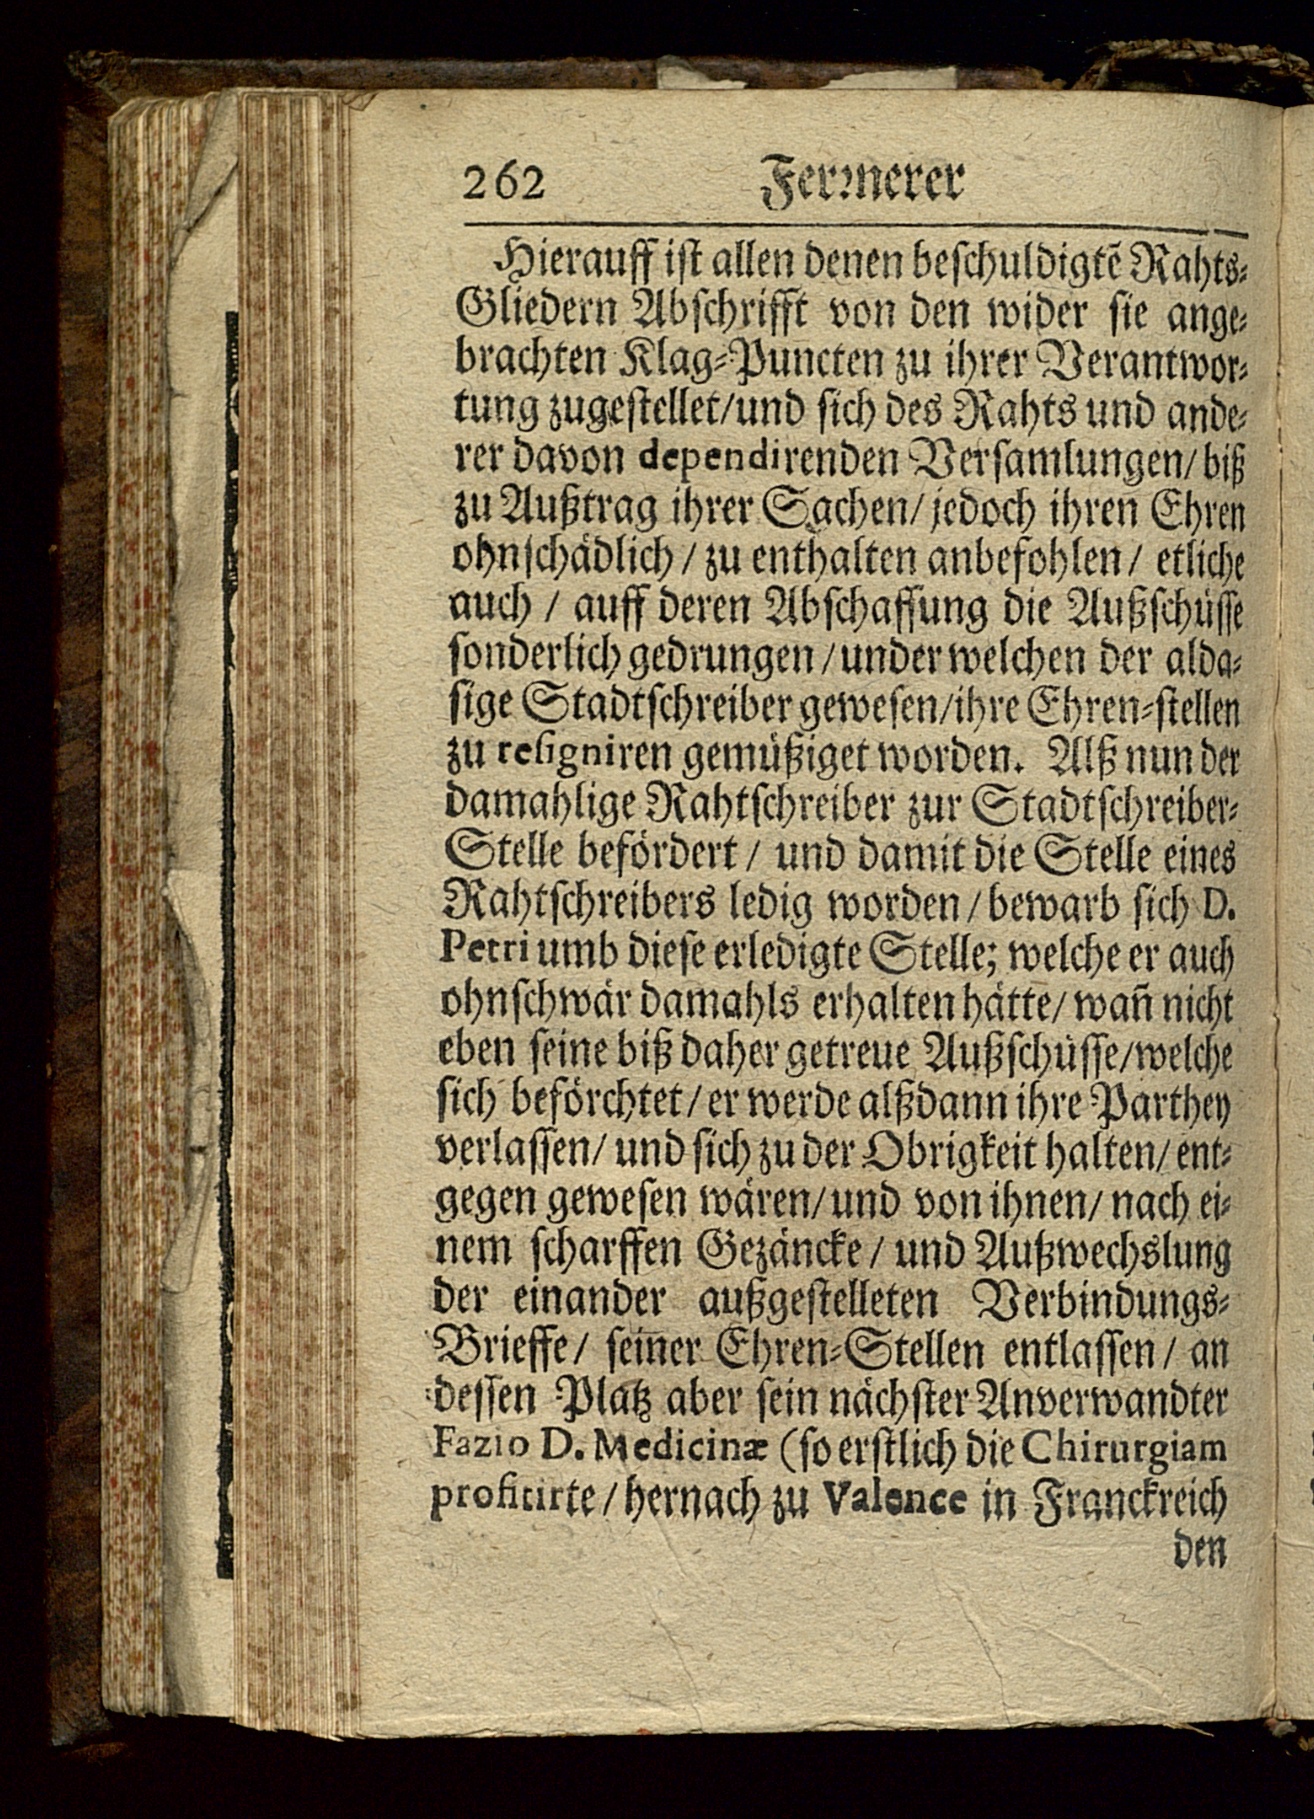 262 Fernerer
Hierauff ist allen denen beschuldigtē Rahts-
Gliedern Abschrifft von den wider sie ange-
brachten Klag-Puncten zu ihrer Verantwor-
tung zugestellet/und sich des Rahts und ande-
rer davon dependirenden Versamlungen/ biß
zu Außtrag ihrer Sachen/ jedoch ihren Ehren
ohnschädlich / zu enthalten anbefohlen / etliche
auch / auff deren Abschaffung die Außschüsse
sonderlich gedrungen / under welchen der alda-
sige Stadtschreiber gewesen/ihre Ehren-stellen
zu resigniren gemüßiget worden. Alß nun der
damahlige Rahtschreiber zur Stadtschreiber-
Stelle befördert / und damit die Stelle eines
Rahtschreibers ledig worden / bewarb sich D.
Petri umb diese erledigte Stelle; welche er auch
ohnschwär damahls erhalten hätte/ wañ nicht
eben seine biß daher getreue Außschüsse/welche
sich beförchtet / er werde alßdann ihre Parthey
verlassen/ und sich zu der Obrigkeit halten/ ent-
gegen gewesen wären/ und von ihnen/ nach ei-
nem scharffen Gezäncke / und Außwechslung
der einander außgestelleten Verbindungs-
Brieffe / seiner Ehren-Stellen entlassen / an
dessen Platz aber sein nächster Anverwandter
Fazio D. Medicinæ (so erstlich die Chirurgiam
profitirte / hernach zu Valence in Franckreich
den